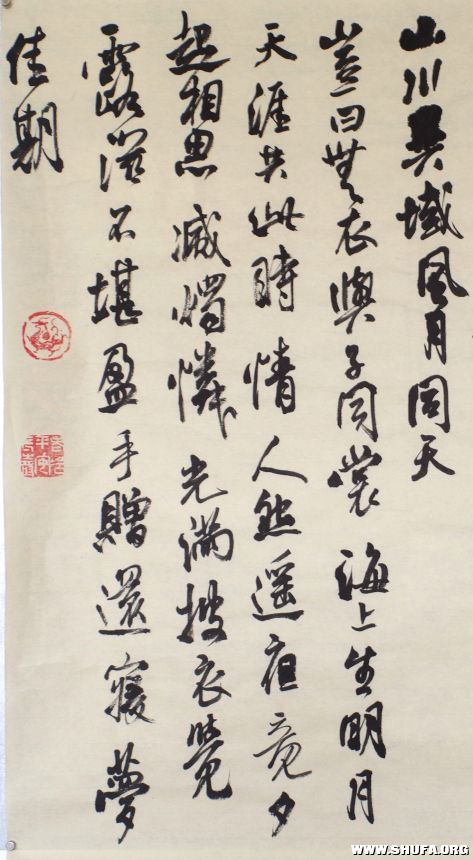 山川異域風月同天
豈曰無衣與子同裳海上生明月
天涯共此時情人怨遥夜竟夕
起相思滅燭憐光滿披衣覺
露滋不堪盈手贈還寢夢
佳期
WWW.SHUFA.ORG